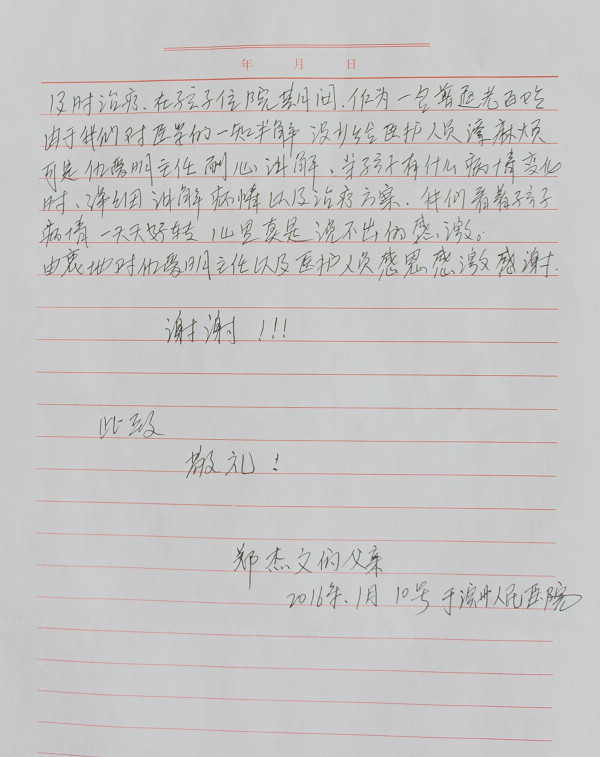 年 月 日
及时治疗. 在孩子住院其间间. 作为一名普通老百姓
由于我们对医学的一知半解 没少给医护人员添麻烦
可是 仇爱明主任耐心讲解、当孩子有什么病情变化
时、详细讲解病情以及治疗方案. 我们看着孩子
病情一天天好转 心里真是说不出的感激。
由衷地对仇爱明主任以及医护人员感恩感激感谢.
谢谢!!!
此致
敬礼!
郑杰文的父亲
2016年.1月10号于滨州人民医院